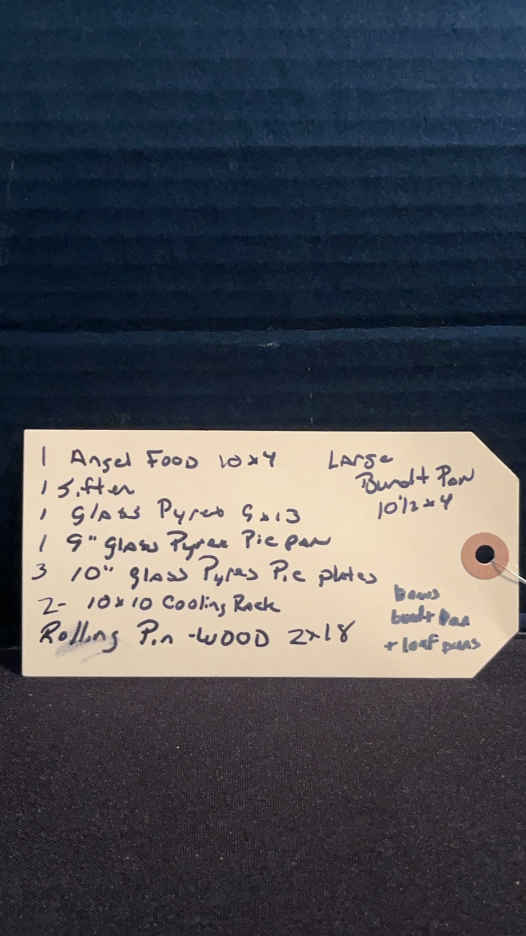 1 Angel Food 10x4
1 Sifter
1 Glass Pyrex 9x13
1 9" glass Pyrex Pie pan
3 10" glass Pyrex Pie plates
2- 10x10 Cooling Rack
Rolling Pin -WOOD 2x18
Large
Bundt Pan
10 1/2 x 4
bundt Pan
+ loaf pans